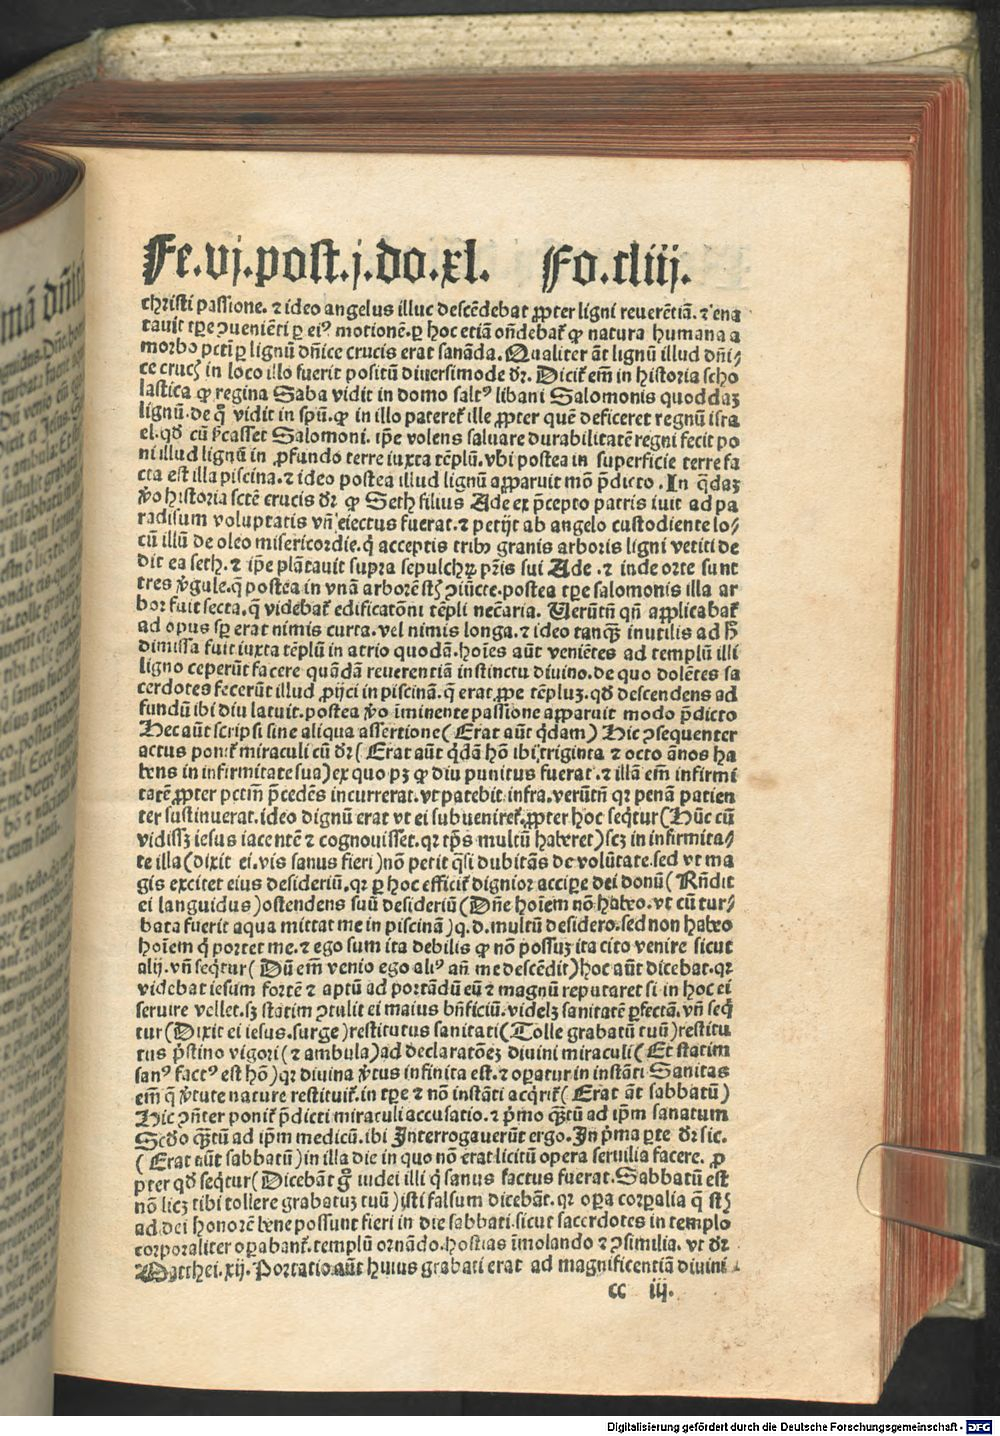 Fe.vj.post.j.do.xl. Fo.cliij.
christi passione. ⁊ ideo angelus illuc descēdebat ꝓpter ligni reuerētiā. ⁊ ena
tauit tꝑe ꝯueniēti ꝑ eiꝰ motionē. ꝑ hoc etiā oñdebat̃ ꝙ natura humana a
morbo pctī ꝑ lignū dñice crucis erat sanāda. Qualiter āt lignū illud dñi⸗
ce crucꝭ in loco illo fuerit positū diuersimode dr̃. Dicit̃ em̄ in historia scho
lastica ꝙ regina Saba vidit in domo saltꝰ libani Salomonis quoddaꝫ
lignū. de q̊ vidit in spū. ꝙ in illo pateret̃ ille ꝓpter quē deficeret regnū isra
el. qd̄ cū p̄dicasset Salomoni. ip̄e volens saluare durabilitatē regni fecit po
ni illud lignū in ꝓfundo terre iuxta tēplū. vbi postea in superficie terre fa
cta est illa piscina. ⁊ ideo postea illud lignū apparuit mō p̄dicto. In q̄daꝫ
v̊o historia sctē crucis dr̃ ꝙ Seth filius Ade ex p̄cepto patris iuit ad pa
radisum voluptatis vñ eiectus fuerat. ⁊ petijt ab angelo custodiente lo⸗
cū illū de oleo misericordie. q̇ acceptis tribꝰ granis arboris ligni vetiti de
dit ea seth. ⁊ ip̄e plātauit supra sepulchrꝝ pr̄is sui Ade. ⁊ inde orte sunt
tres v̓gule. q̄ postea in vnā arborē st̄ ꝯiūcte. postea tꝑe salomonis illa ar
bor fuit secta. q̄ videbat̃ edificatōni tēpli nec̄aria. Uerūtn̄ qn̄ applicabat̃
ad opus sꝑ erat nimis curta. vel nimis longa. ⁊ ideo tanꝙ̄ inutilis ad h̄
dimissa fuit iuxta tēplū in atrio quodā. hoīes aūt veniētes ad templū illi
ligno ceperūt facere quādā reuerentiā instinctu diuino. de quo dolētes sa
cerdotes fecerūt illud ꝓijci in piscinā. q̄ erat ꝓpe tēpluꝫ. qd̄ descendens ad
fundū ibi diu latuit. postea v̊o īminente passione apparuit modo p̄dicto
Hec aūt scripsi sine aliqua assertione ( Erat aūt q̇dam ) Hic ꝯsequenter
actus ponit̃ miraculi cū dr̃ ( Erat aūt q̇dā hō ibi triginta ⁊ octo ānos ha
bens in infirmitate sua ) ex quo pꝫ ꝙ diu punitus fuerat. ⁊ illā em̄ infirmi
tatē ꝓpter pctm̄ p̄cedēs incurrerat. vt patebit infra. verūtn̄ qꝛ penā patien
ter sustinuerat. ideo dignū erat vt ei subueniret̃. ꝓpter hoc seq̇tur ( Hūc cū
vidissꝫ iesus iacentē ⁊ cognouisset. qꝛ tp̄s multū haberet ) scꝫ in infirmita⸗
te illa ( dixit ei. vis sanus fieri ) nō petit q̄si dubitās de volūtate. sed vt ma
gis excitet eius desideriū. qꝛ ꝑ hoc efficit̃ dignior accipe dei donū ( Rn̄dit
ei languidus ) ostendens suū desideriū ( Dn̄e hoīem nō habeo. vt cū tur⸗
bata fuerit aqua mittat me in piscinā ) q. d. multū desidero. sed non habeo
hoīem q̇ portet me. ⁊ ego sum ita debilis ꝙ nō possuꝫ ita cito venire sicut
alij. vñ seq̇tur ( Dū em̄ venio ego aliꝰ añ me descēdit ) hoc aūt dicebat. qꝛ
videbat iesum fortē ⁊ aptū ad portādū eū ⁊ magnū reputaret si in hoc ei
seruire vellet. sꝫ statim ꝯtulit ei maius bn̄ficiū. videlꝫ sanitatē ꝑfectā. vñ seq̇
tur ( Dixit ei iesus. surge ) restitutus sanitati ( Tolle grabatū tuū ) restitu
tus p̓stino vigori ( ⁊ ambula ) ad declaratōeꝫ diuini miraculi ( Et statim
sanꝰ factꝰ est hō ) qꝛ diuina v̓tus infinita est. ⁊ oꝑatur in instāti Sanitas
em̄ q̄ v̓tute nature restituit̃. in tꝑe ⁊ nō instāti acq̇rit̃ ( Erat āt sabbatū )
Hic ꝯn̄ter ponit̃ p̄dicti miraculi accusatio. ⁊ p̓mo ꝙ̄tū ad ip̄m sanatum
Scd̊o ꝙ̄tū ad ip̄m medicū. ibi Interrogauerūt ergo. In p̓ma ꝑte dr̃ sic.
( Erat aūt sabbatū ) in illa die in quo nō erat licitū opera seruilia facere. ꝓ
pter qd̄ seq̇tur ( Dicebāt g̊ iudei illi q̇ sanus factus fuerat. Sabbatū est
nō licꝫ tibi tollere grabatuꝫ tuū ) isti falsum dicebāt. qꝛ oꝑa corꝑalia q̄ st̄
ad dei honorē bene possunt fieri in die sabbati. sicut sacerdotes in templo
corporaliter oꝑabant̃. templū ornādo. hostias īmolando ⁊ ꝯsimilia. vt dr̃
Matthei. xij. Portatio aūt huius grabati erat ad magnificentiā diuini
cc iij.
Digitalisierung gefördert durch die Deutsche Forschungsgemeinschaft - DFG